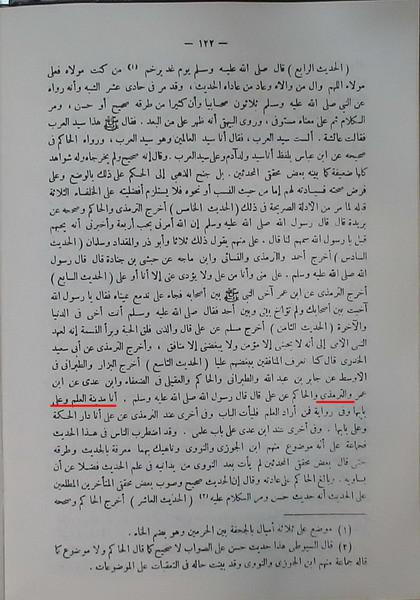 — ١٢٢ —
( الحديث الرابع ) قال صلى الله عليه وسلم يوم غدير خم (١) من كنت مولاه فعلى
مولاه اللهم وال من والاه وعاد من عاداه الحديث ، وقد مر فى حادى عشر الشبه وأنه رواه
عن النبي صلى الله عليه وسلم ثلاثون صحابيا وأن كثيرا من طرقه صحيح أو حسن ، ومر
الكلام ثم على معناه مستوفى ، وروى البيهقى أنه ظهر على من البعد . فقال ﷺ هذا سيد العرب
فقالت عائشة . ألست سيد العرب ، فقال أنا سيد العالمين وهو سيد العرب ، ورواه الحاكم فى
صحيحه عن ابن عباس بلفظ أنا سيد ولد آدم وعلى سيد العرب . وقال إنه صحيح ولم يخرجاه وله شواهد
كلها ضعيفة كما بينه بعض محققى المحدثين . بل جنح الذهبى إلى الحكم على ذلك بالوضع وعلى
فرض صحته فسيادته لهم إما من حيث النسب أو نحوه فلا يستلزم أفضليته على الخلفاء الثلاثة
قبله لما مر من الادلة الصريحة فى ذلك ( الحديث الخامس ) أخرج الترمذى والحاكم وصححه عن
بريدة قال قال رسول الله صلى الله عليه وسلم إن الله أمرنى بحب أربعة وأخبرنى أنه يحبهم
قيل يا رسول الله سمهم لنا قال . على منهم يقول ذلك ثلاثا وأبو ذر والمقداد وسلمان ( الحديث
السادس ) أخرج أحمد والترمذى والنسائى وابن ماجه عن حبشى بن جنادة قال قال رسول
الله صلى الله عليه وسلم . على منى وأنا من على ولا يؤدى عنى إلا أنا أو على ( الحديث السابع )
أخرج الترمذى عن ابن عمر آخى النبى ﷺ بين أصحابه فجاء على تدمع عيناه فقال يا رسول الله
آخيت بين أصحابك ولم تؤاخ بينى وبين أحد فقال صلى الله عليه وسلم أنت أخى فى الدنيا
والآخرة ( الحديث الثامن ) أخرج مسلم عن على قال والذى فلق الحبة وبرأ النسمة إنه لعهد
النبى الامى إلى أنه لا يحبنى إلا مؤمن ولا يبغضنى إلا منافق ، وأخرج الترمذى عن أبى سعيد
الخدرى قال كنا نعرف المنافقين ببغضهم عليا ( الحديث التاسع ) أخرج البزار والطبرانى فى
الاوسط عن جابر بن عبد الله والطبرانى والحاكم والعقيلى فى الضعفاء وابن عدى عن ابن
عمر والترمذى والحاكم عن على قال قال رسول الله صلى الله عليه وسلم . أنا مدينة العلم وعلى
بابها وفى رواية فمن أراد العلم فليأت الباب وفى أخرى عند الترمذى عن على أنا دار الحكمة
وعلى بابها وفى أخرى عند ابن عدى على باب علمى . وقد اضطرب الناس فى هذا الحديث
فجماعة على أنه موضوع منهم ابن الجوزى والنووى وناهيك بهما معرفة بالحديث وطرقه
حتى قال بعض محققى المحدثين لم يأت بعد النووى من يدانيه فى علم الحديث فضلا عن أن
يساويه . وبالغ الحاكم على عادته وقال إن الحديث صحيح وصوب بعض محققى المتأخرين المطلعين
على الحديث أنه حديث حسن ومر الكلام عليه (٢) ( الحديث العاشر ) أخرج الحاكم وصححه
(١) موضع على ثلاثة أميال بالجحفة بين الحرمين وهو بضم الخاء .
(٢) قال السيوطى هذا حديث حسن على الصواب لا صحيح كما قال الحاكم ولا موضوع كما
قاله جماعة منهم ابن الجوزى والنووى وقد بينت حاله فى التعقبات على الموضوعات .